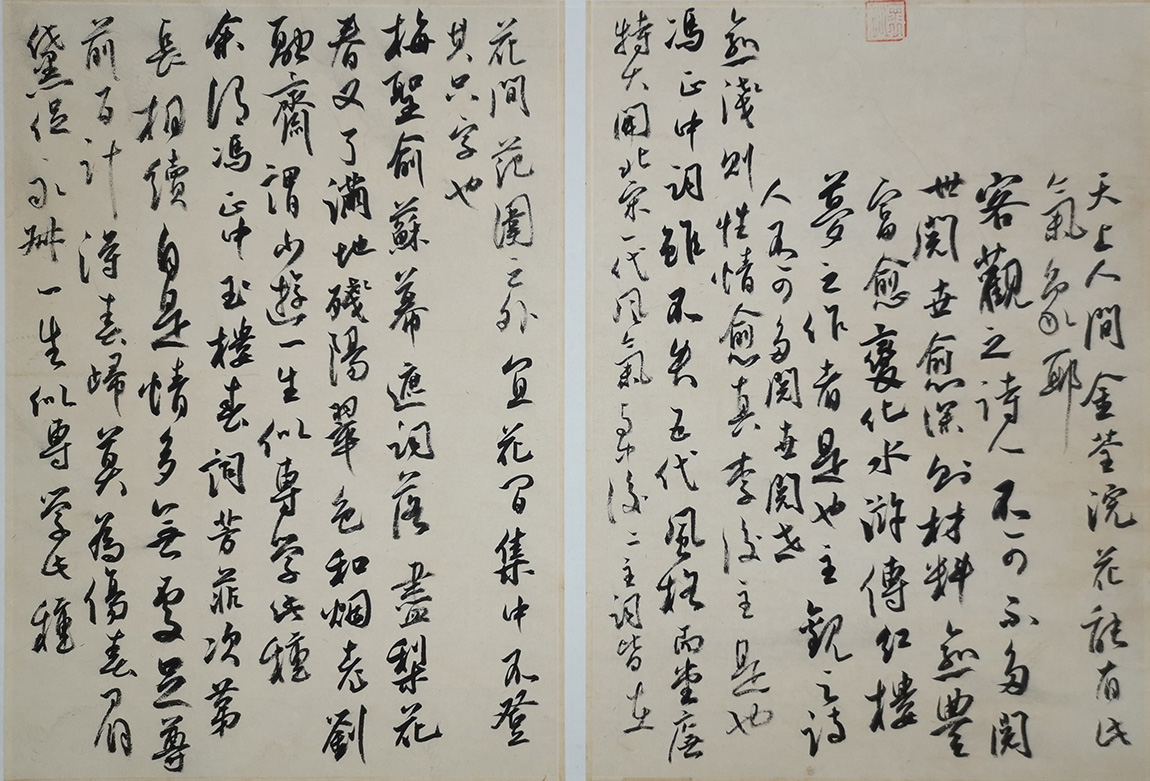 天上人間金荃浣花能有此
氣象耶
客觀之詩人不可不多閱
世閱世愈深則材料愈豐
富愈變化水滸傳紅樓
夢之作者是也主觀之詩
人不可多閱世閱世
愈淺則性情愈真李後主是也
馮正中詞雖不失五代風格而堂廡
特大開北宋一代風氣与中後二主詞皆在
花間范圍之外宜花間集中不登
其只字也
梅聖俞蘇幕遮詞落盡梨花
春又了滿地殘陽翠色和烟老劉
融齋謂少遊一生似專學此種
余謂馮正中玉樓春詞芳菲次第
長相續自是情多無處足尊
前百計得春歸莫為傷春眉
黛促永叔一生似專學此種